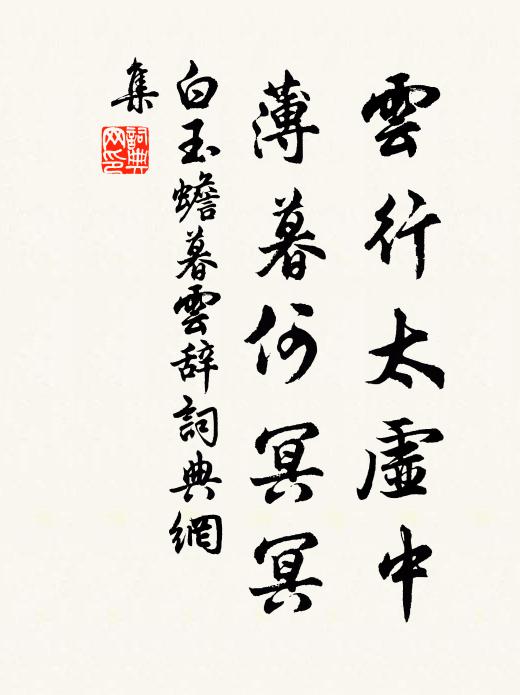 雲行太虛中
薄暮何冥冥
白玉蟾暮雲辞詞典網
集
詞典網印